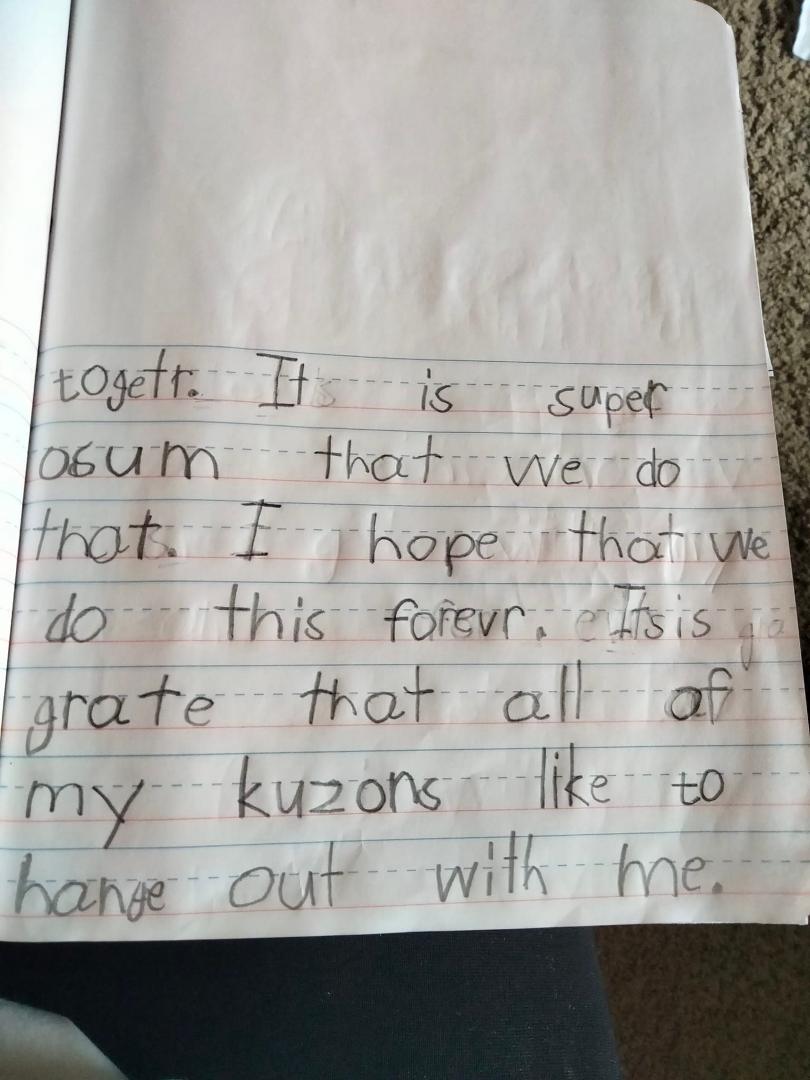 togetr. It is super
osum that we do
that. I hope that we
do this forevr. Its is
grate that all of
my kuzons like to
hange out with me.